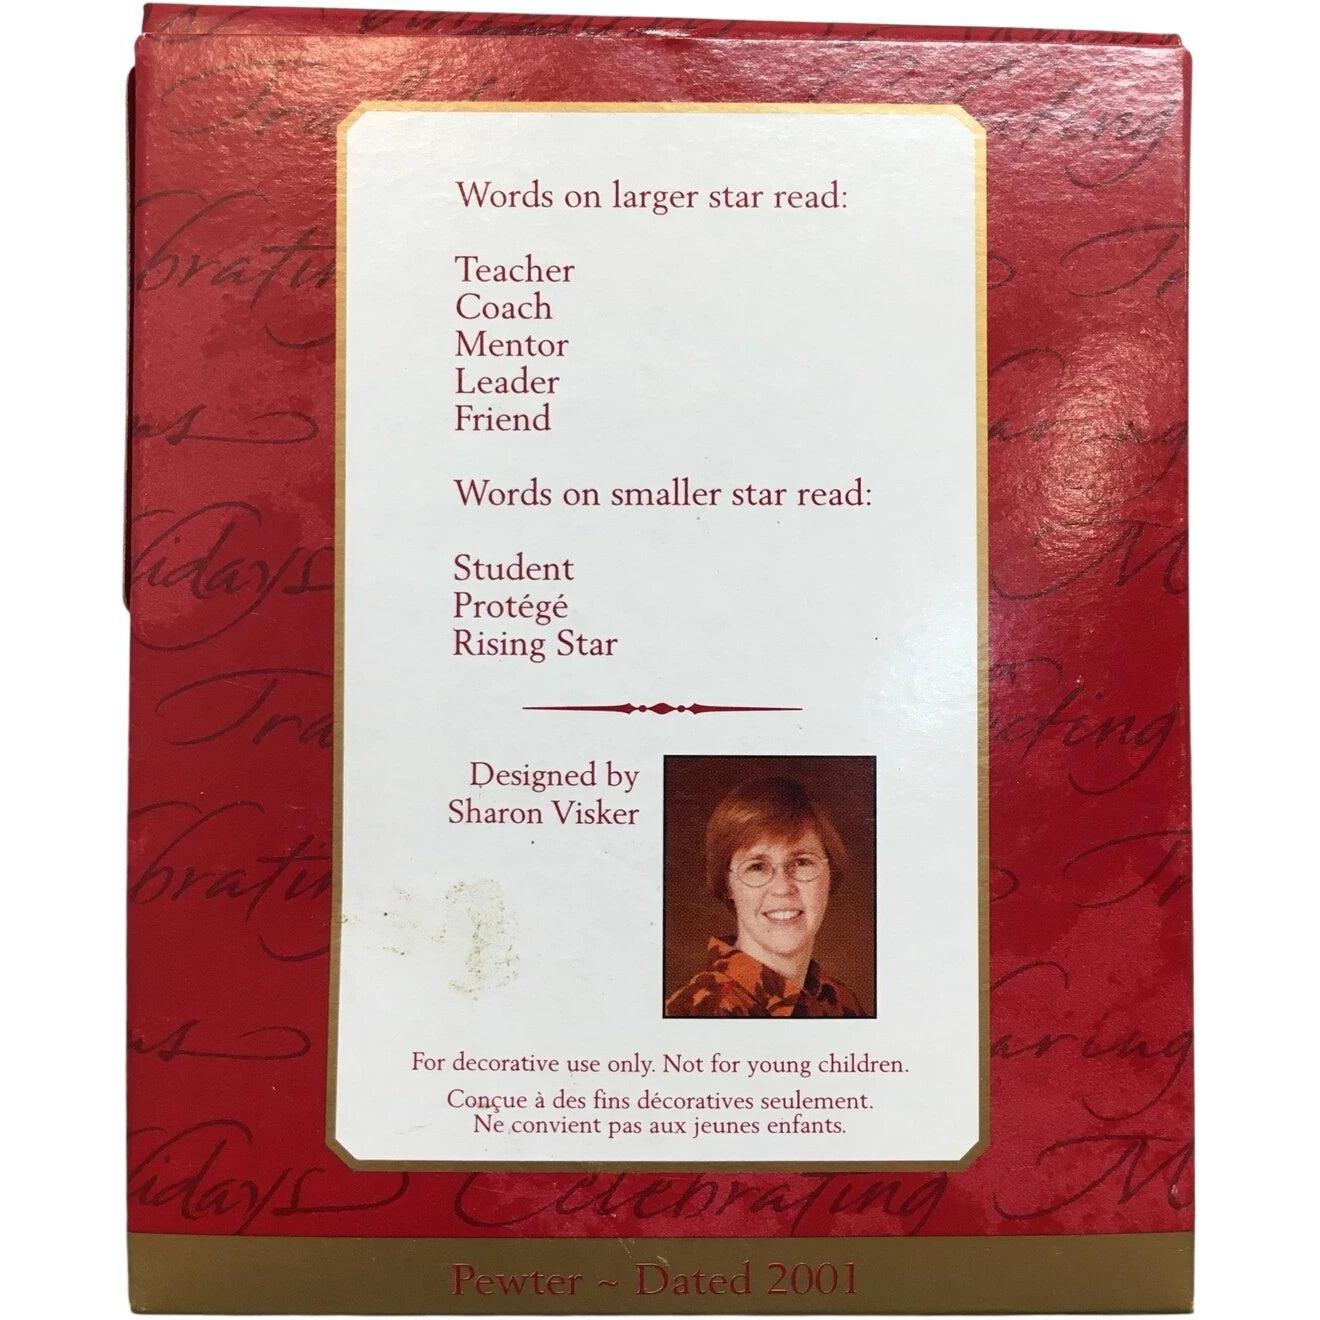 Words on larger star read:
Teacher
Coach
Mentor
Leader
Friend
Words on smaller star read:
Student
Protégé
Rising Star
Designed by
Sharon Visker
For decorative use only. Not for young children.
Conçue à des fins décoratives seulement.
Ne convient pas aux jeunes enfants.
Celebrating
Pewter ~ Dated 2001